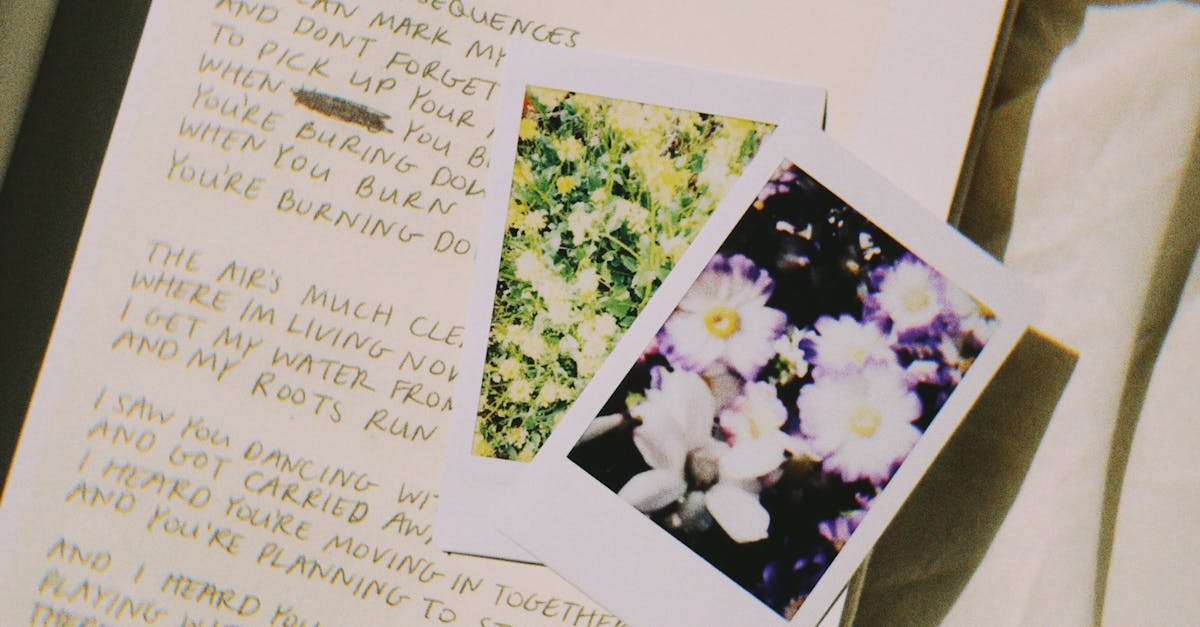 CAN MARK MY
AND DONT FORGET
TO PICK UP YOUR
WHEN YOU
YOU'RE BURING
WHEN YOU BURN
YOU'RE BURNING
THE AIR'S MUCH
WHERE IM LIVING
I GET MY WATER FROM
AND MY ROOTS RUN
I SAW YOU DANCING
AND GOT CARRIED
I HEARD YOU'RE MOVING IN TOGETHER
AND YOU'RE PLANNING TO
AND I HEARD YOU
PLAYING